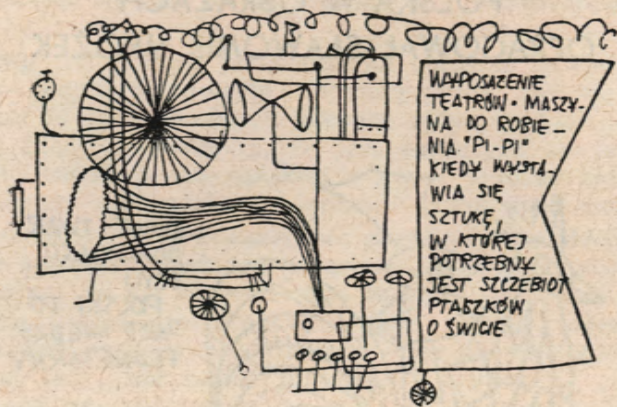 WYPOSAŻENIE
TEATRÓW · MASZY-
NA DO ROBIE-
NIA "PI-PI"
KIEDY WYSTA-
WIA SIĘ
SZTUKĘ,
W KTÓREJ
POTRZEBNY
JEST SZCZEBIOT
PTASZKÓW
O ŚWICIE